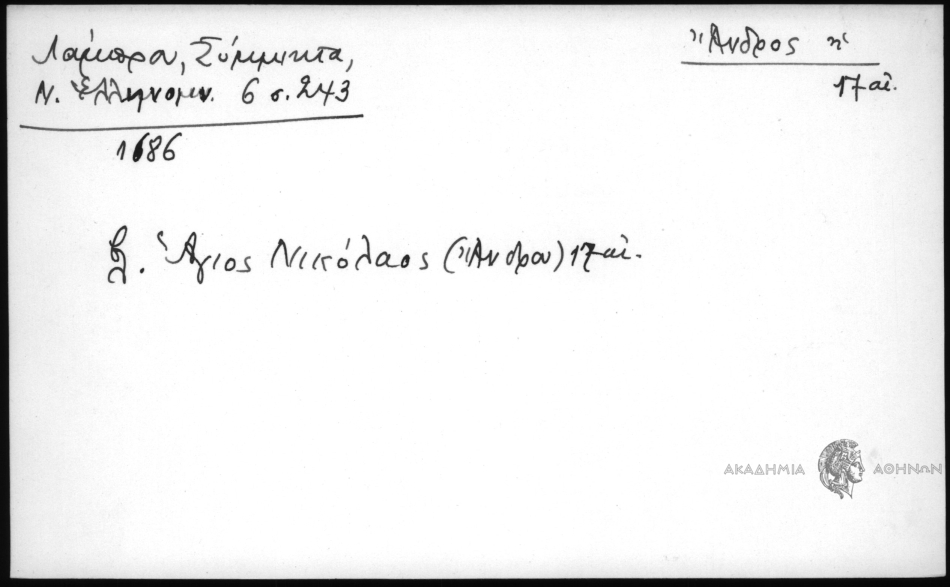 Λάμπρου, Σύμμικτα,
Ν. Ἑλληνομν. 6 σ. 243
1686
Ἄνδρος ἡ
17 αἰ.
βλ. Ἅγιος Νικόλαος (Ἄνδρου) 17 αἰ.
ΑΚΑΔΗΜΙΑ ΑΘΗΝΩΝ